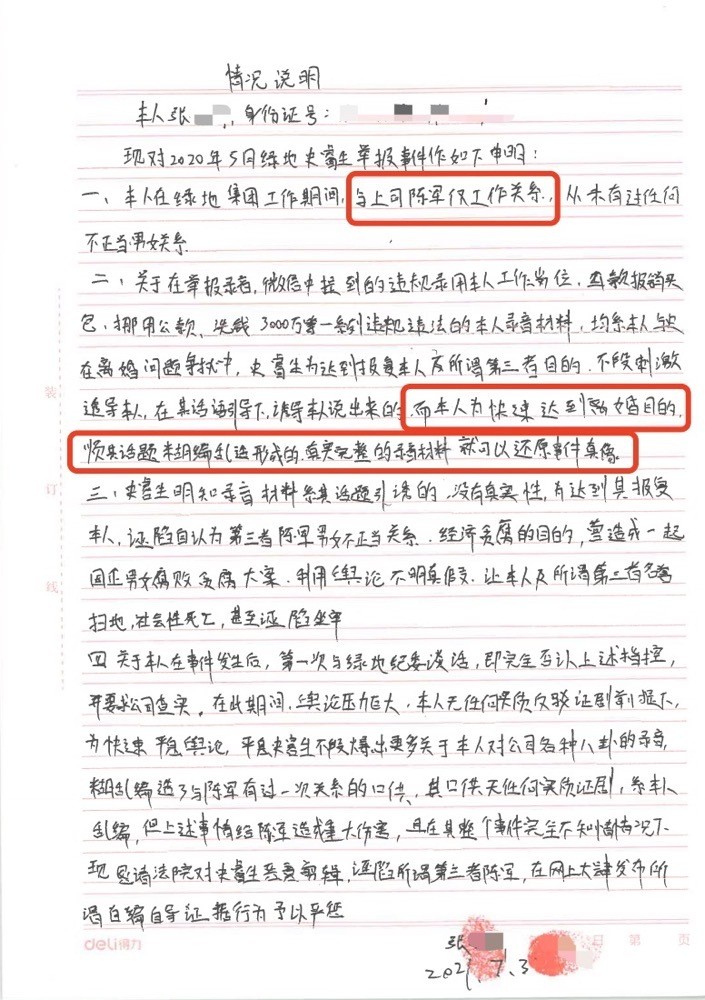 情况说明
本人张 , 身份证号:
现对2020年5月绿地史害生举报事件作如下申明:
一、本人在绿地集团工作期间,与上司陈军仅工作关系,从未有过任何
不正当男女关系
二、关于在举报录音,微信中提到的违规录用本人工作岗位、巨款报销买
包、挪用公款、 3000万 违规违法的本人录音材料,均系本人与史
在离婚问题争执中,史害生为达到报复本人及所谓第三者目的,不段刺激
追导本人,在其话语引导下,诱导本人说出来的,而本人为快速达到离婚目的,
顺其话题来胡编乱造形成的,真实完整的录音材料就可以还原事件真像。
三、史害生明知录音材料系其话题引诱的,没有真实性,为达到其报复
本人,诬陷自认为第三者陈军男女不正当关系、经济贪腐的目的,营造成一起
国企男女腐败贪腐大案,利用舆论不明真假,让本人及所谓第三者名誉
扫地,社会性死亡,甚至诬陷坐牢
四 关于本人在事件发生后,第一次与绿地纪委谈话,即完全否认上述指控,
并要求公司查实。在此期间,舆论压力巨大,本人无任何实质反驳证剧前提下,
为快速平息舆论,平息史害生不段爆出更多关于本人对公司各种八卦的录音,
糊乱编造了与陈军有过一次关系的口供、其口供无任何实质证剧,系本人
乱编,但上述事情给陈军造成重大伤害,且在其整个事件完全不知情情况下
现恳请法院对史害生恶意剪辑,诬陷所谓第三者陈军,在网上大肆发布所
谓自编自导证据行为予以严惩
张
2021.7.3
deli得力
日 第 页
装
订
线